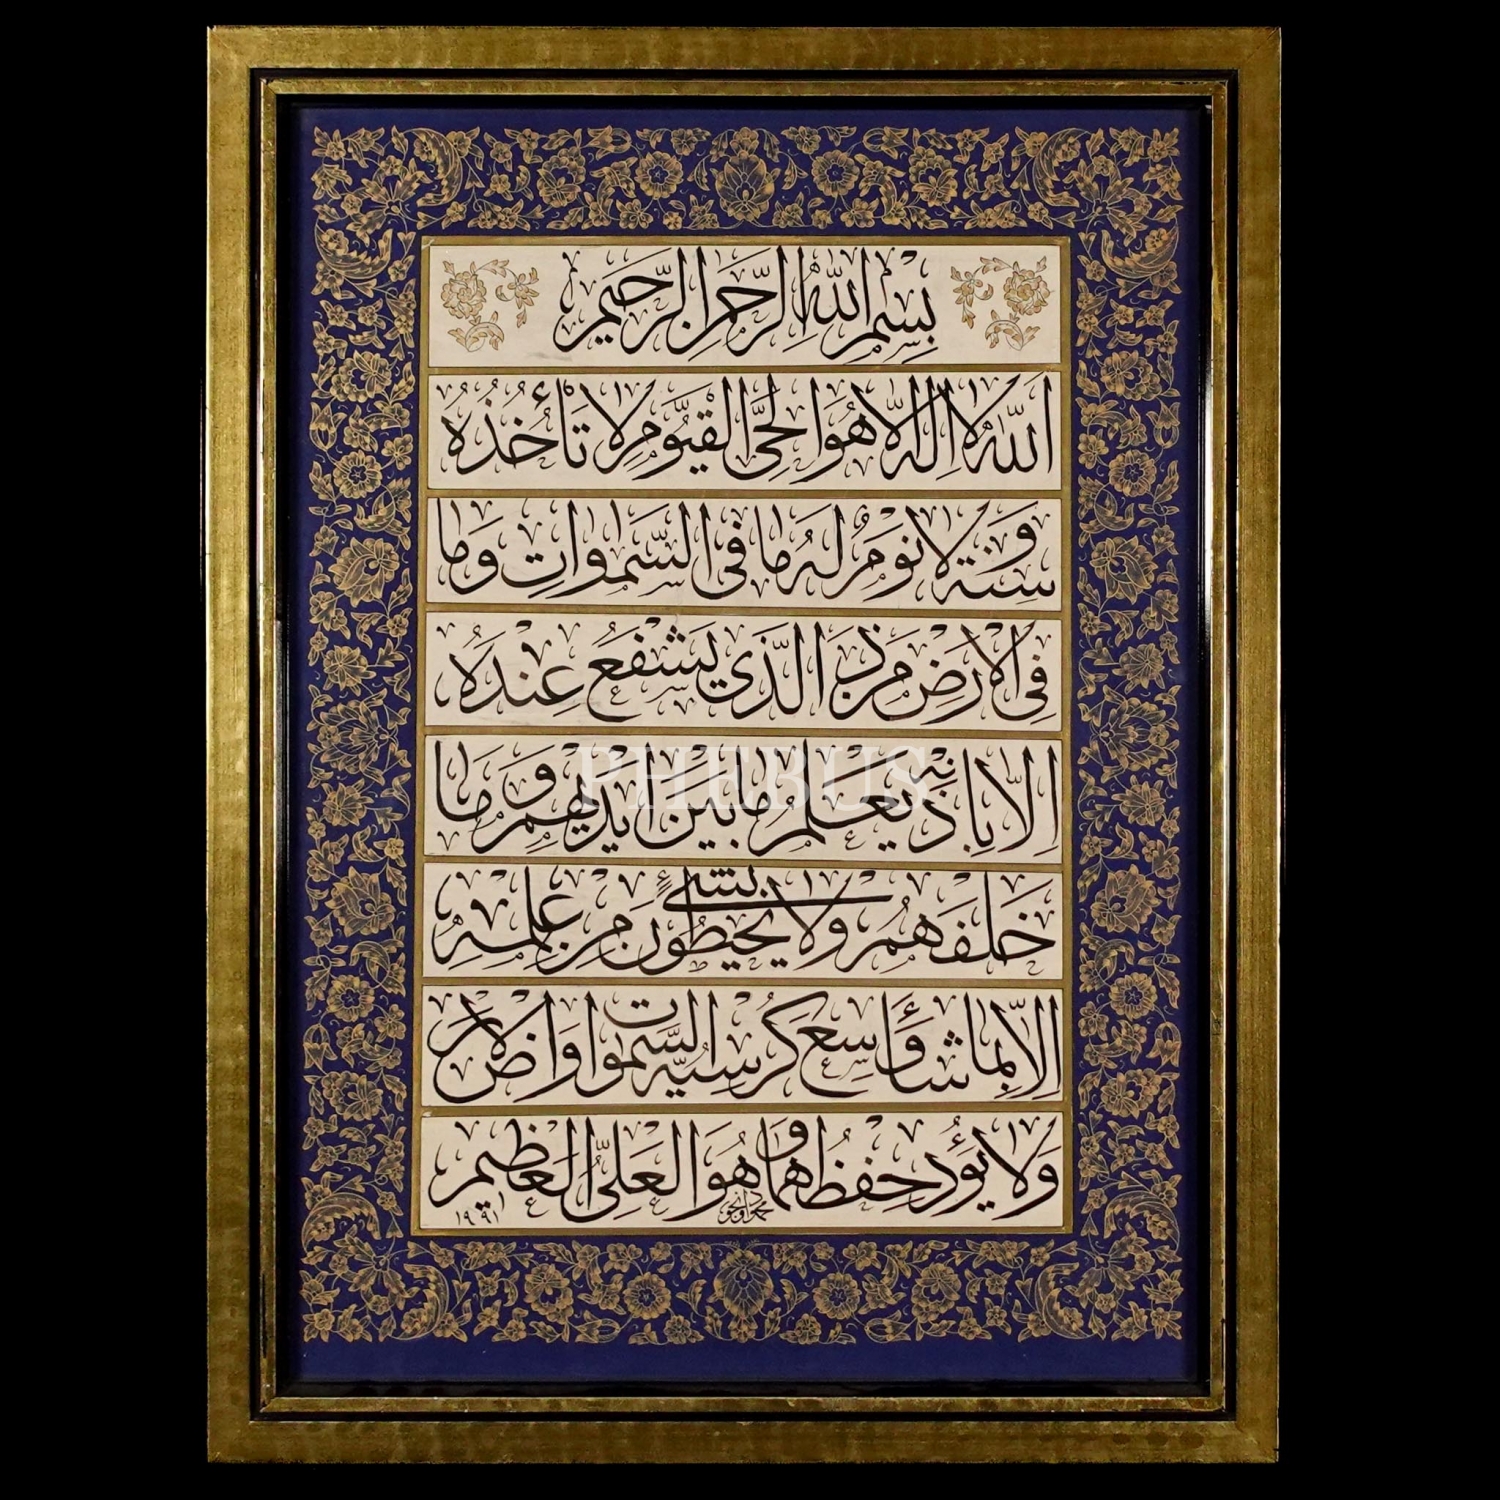 بِسْمِ اللهِ الرَّحْمنِ الرَّحيمِ
اَللهُ لا اِلهَ اِلَّا هُوَ الْحَىُّ الْقَيُّومُ لا تَأْخُذُهُ
سِنَةٌ وَلا نَوْمٌ لَهُ ما فِى السَّمٰوَاتِ وَما
فِى الْاَرْضِ مَنْ ذَا الَّذى يَشْفَعُ عِنْدَهُ
اِلَّا بِاِذْنِه يَعْلَمُ ما بَيْنَ اَيْديهِمْ وَما
خَلْفَهُمْ وَلا يُحيطُونَ بِشَىْءٍ مِنْ عِلْمِهِ
اِلَّا بِما شاءَ وَسِعَ كُرْسِيُّهُ السَّمٰوَاتِ وَالْاَرْضَ
وَلا يَؤُدُهُ حِفْظُهُما وَهُوَ الْعَلِىُّ الْعَظيمُ
PHEBUS
١٩٩١